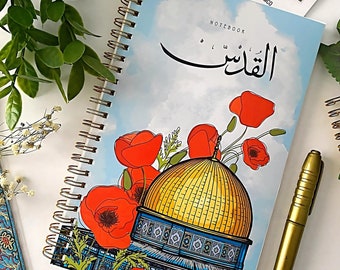 NOTEBOOK
القدس